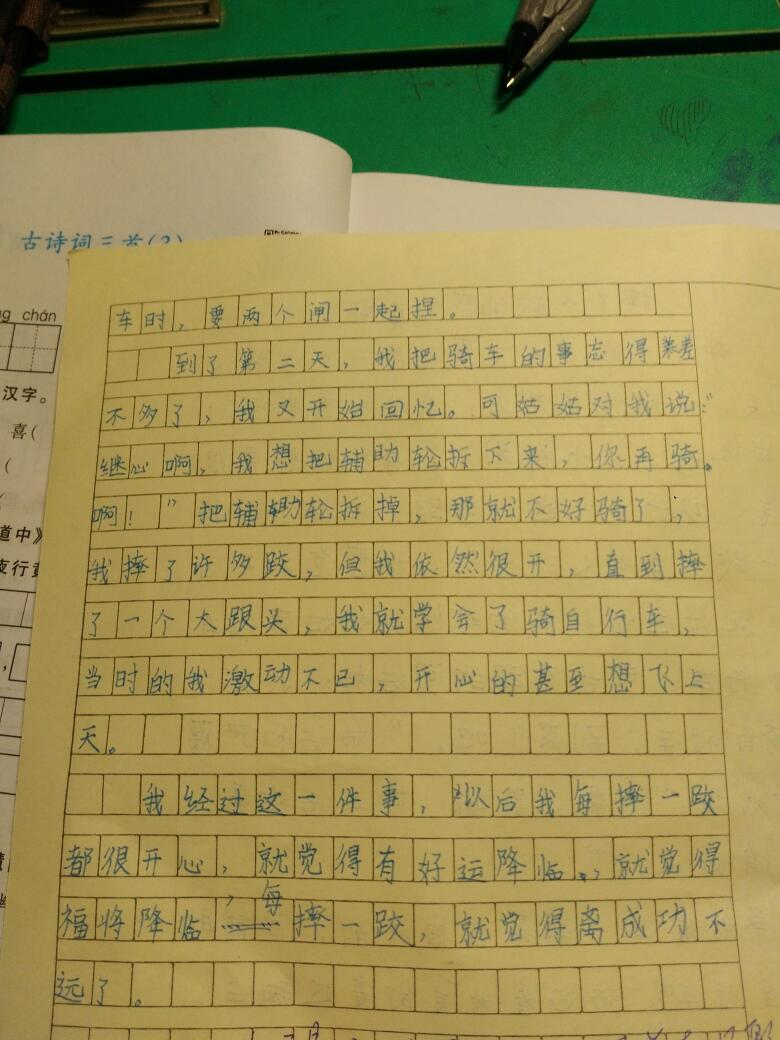 古诗词三首(2)
chán
汉字。
喜(
(
道中》
夜行黄
车时，要两个闸一起捏。
到了第二天，我把骑车的事忘得差
不多了，我又开始回忆。可姑姑对我说：“
继心啊，我想把辅助轮拆下来，你再骑。
啊！”把辅助轮拆掉，那就不好骑了，
我摔了许多跤，但我依然很开，直到摔
了一个大跟头，我就学会了骑自行车，
当时的我激动不已，开心的甚至想飞上
天。
我经过这一件事，以后我每摔一跤
都很开心，就觉得有好运降临，就觉得
福将降临，每摔一跤，就觉得离成功不
远了。